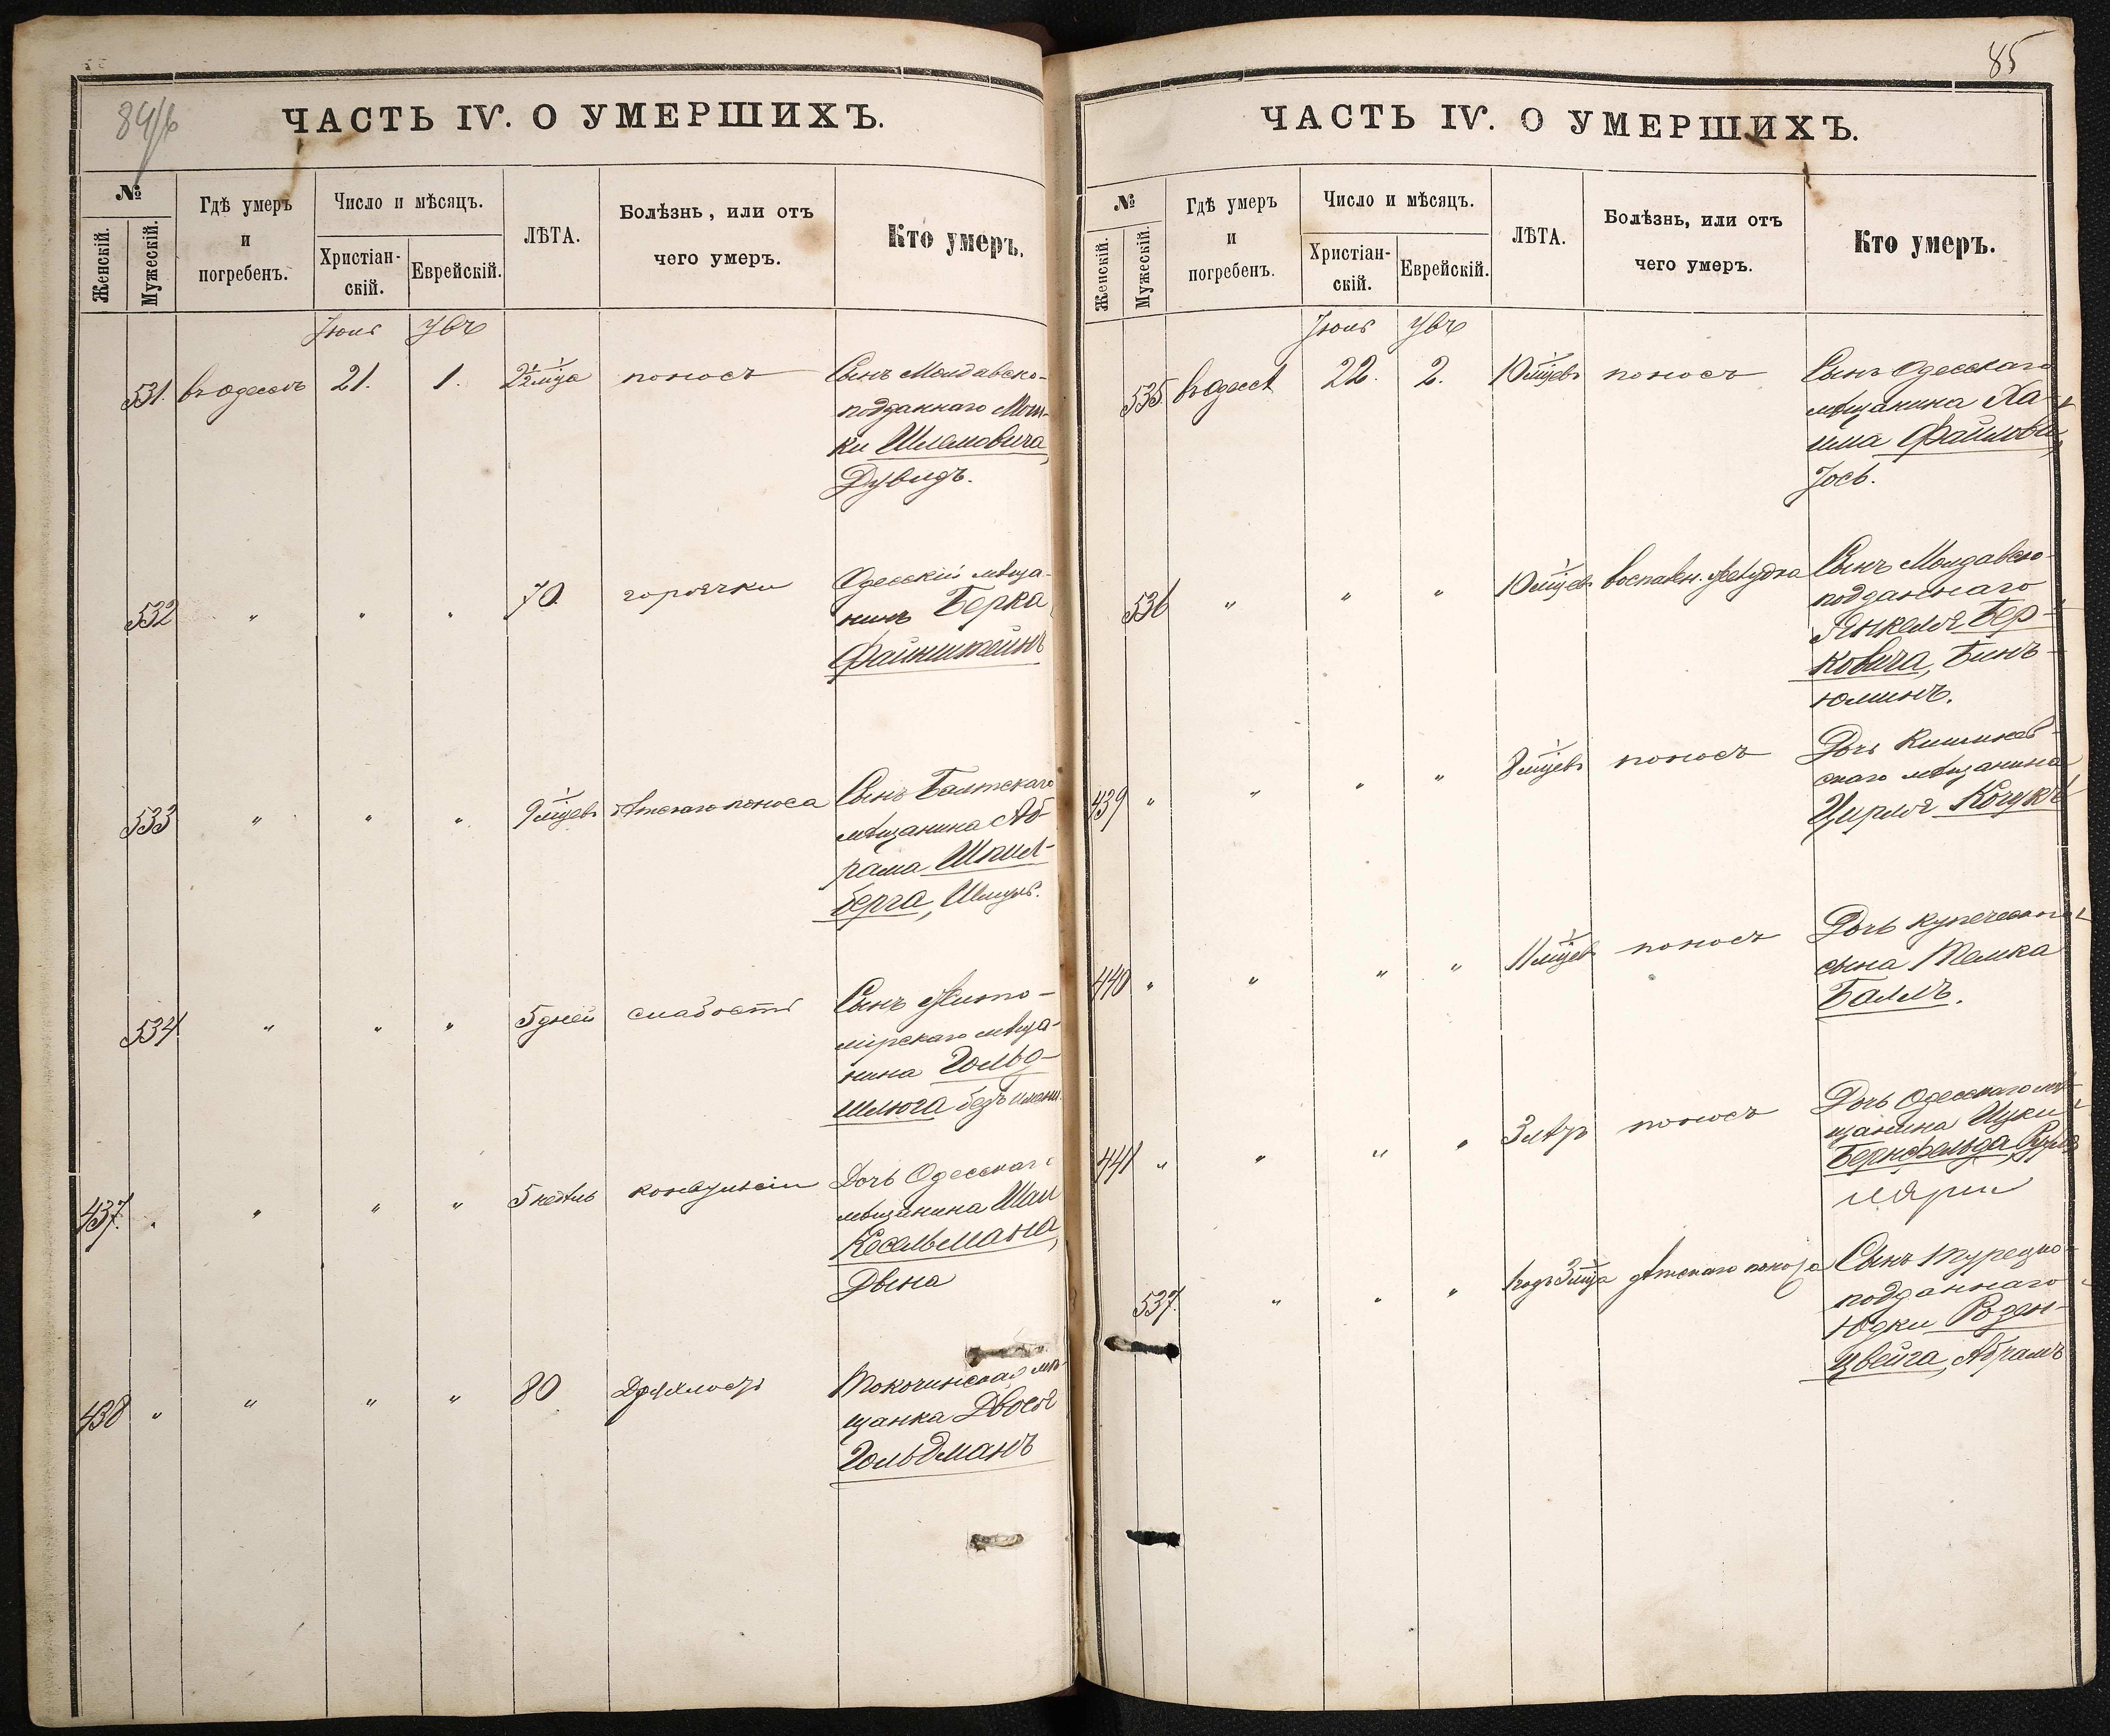 84/б
ЧАСТЬ IV. О УМЕРШИХЪ.
№
Женскій.
Мужескій.
Гдѣ умеръ
и
погребенъ.
Число и мѣсяцъ.
Христіан-
скій.
Еврейскій.
ЛѢТА.
Болѣзнь, или отъ
чего умеръ.
Кто умеръ.
Іюль
531. въ Одессѣ 21. 1. поносъ Сынъ Молдавско-
подданнаго Мош-
ки Шлемовича,
Дувидъ.
532 " " " 70. горячки Одесскій мѣща-
нинъ Берка
Файнштейнъ
533 " " " 9 мцевъ дѣтскаго поноса Сынъ Балтскаго
мѣщанина Аб-
рама Шпил-
берга, Шмуль.
534 " " " 5 дней слабость Сынъ Жито-
мірскаго мѣща-
нина Гольд-
шлюга безъ имени.
437. " " " " 5 недѣль конвульсіи Дочь Одесскаго
мѣщанина Шаи
Кесельмана,
Двына
438 " " " " 80 Дряхлость мѣ-
щанка Двося
Гольдманъ
85
ЧАСТЬ IV. О УМЕРШИХЪ.
№
Женскій.
Мужескій.
Гдѣ умеръ
и
погребенъ.
Число и мѣсяцъ.
Христіан-
скій.
Еврейскій.
ЛѢТА.
Болѣзнь, или отъ
чего умеръ.
Кто умеръ.
Іюль
535 въ Одессѣ 22. 2. 10 мцевъ поносъ Сынъ Одесскаго
мѣщанина Ха-
има
Іось.
536 " " " 10 мцевъ воспален. желудка Сынъ Молдавско-
подданнаго
Янкеля Бер-
ковича, Бинь-
юминъ.
439 " " " " 8 мцевъ поносъ Дочь Кишинев-
скаго мѣщанина
Цирля Кочукъ
440 " " " " 11 мцевъ поносъ Дочь купеческаго
сына
Балъ.
441 " " " " 3 лѣтъ поносъ Дочь Одесскаго мѣ-
щанина Ицки
Бернфельда,
537. " " " 1 годъ 3 мца дѣтскаго поноса Сынъ Турецко-
подданнаго
Юдки Розен-
цвейга, Абрамъ